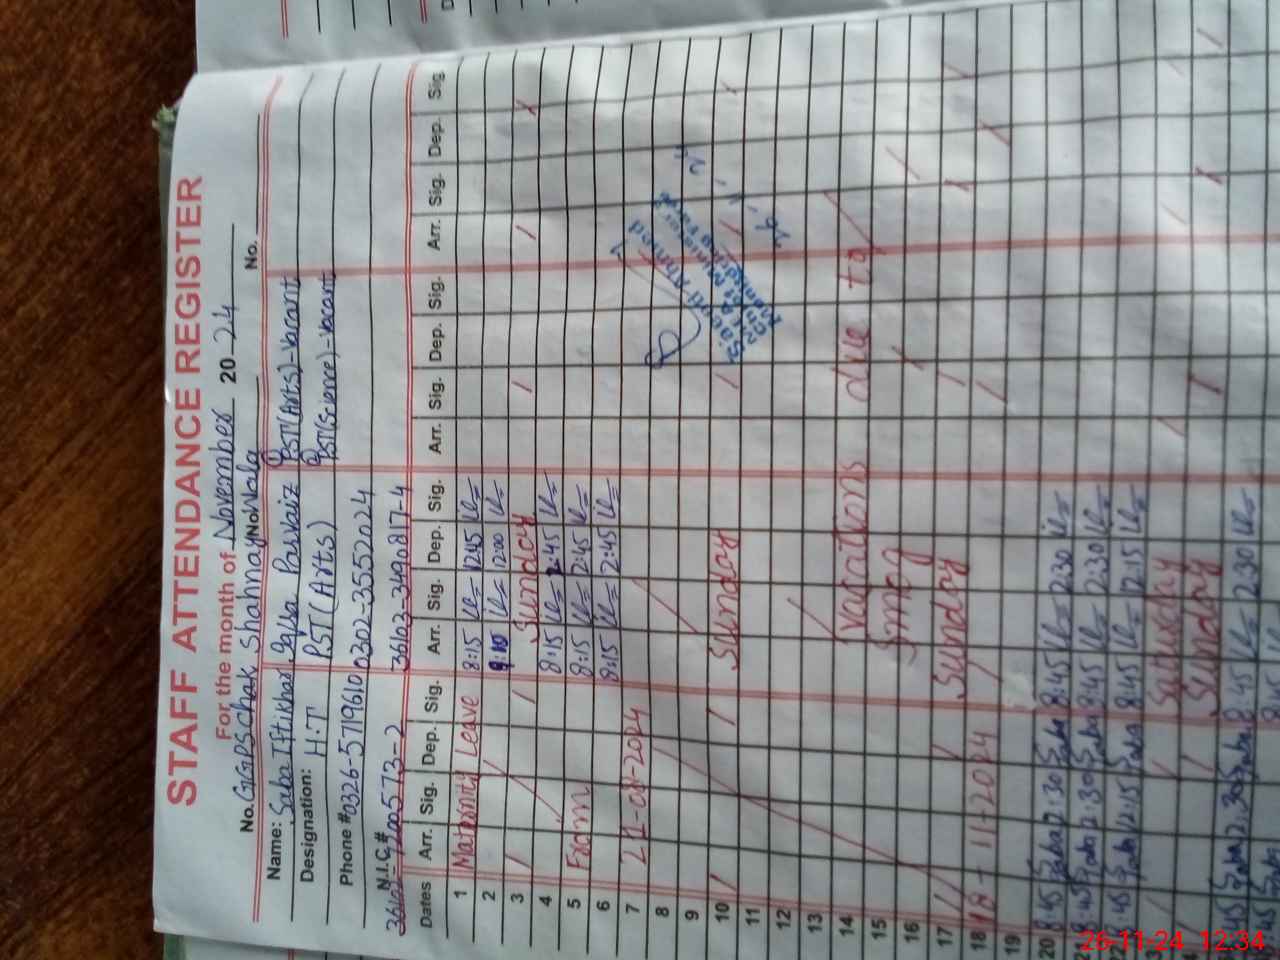 STAFF ATTENDANCE REGISTER
For the month of November 20 24
No. GGPS chak Shahnay Wala No.
Name: Saba Iftikhar Iqsa Parvaiz PST(Arts)-Vacant
Designation: H.T PST(Arts) PST(Science)-Vacant
Phone # 0326-5719610 0302-3552024
N.I.C.# 36103-3490817-4
Dates Arr. Sig. Dep. Sig. Arr. Sig. Dep. Sig. Arr. Sig. Dep. Sig. Arr. Sig. Dep. Sig.
1 Maternity Leave 8:15 12:45
2 9:10 12:00
3 Sunday
4 8:15 2:45
5 From 8:15 2:45
6 8:15 2:45
7 21-08-2024
8
9
10 Sunday
11
12
13
14 Vacations due to
15
16 Smog
17 Sunday
18 18-11-2024
19
20 8:45 Saba 2:30 Saba 8:45 2:30
8:45 Saba 2:30 Saba 8:45 2:30
22 8:45 Saba 12:15 Saba 8:45 12:15
Saturday
Sunday
8:45 Saba 2:30 Saba 8:45 2:30
8:45
26-11-24 12:34